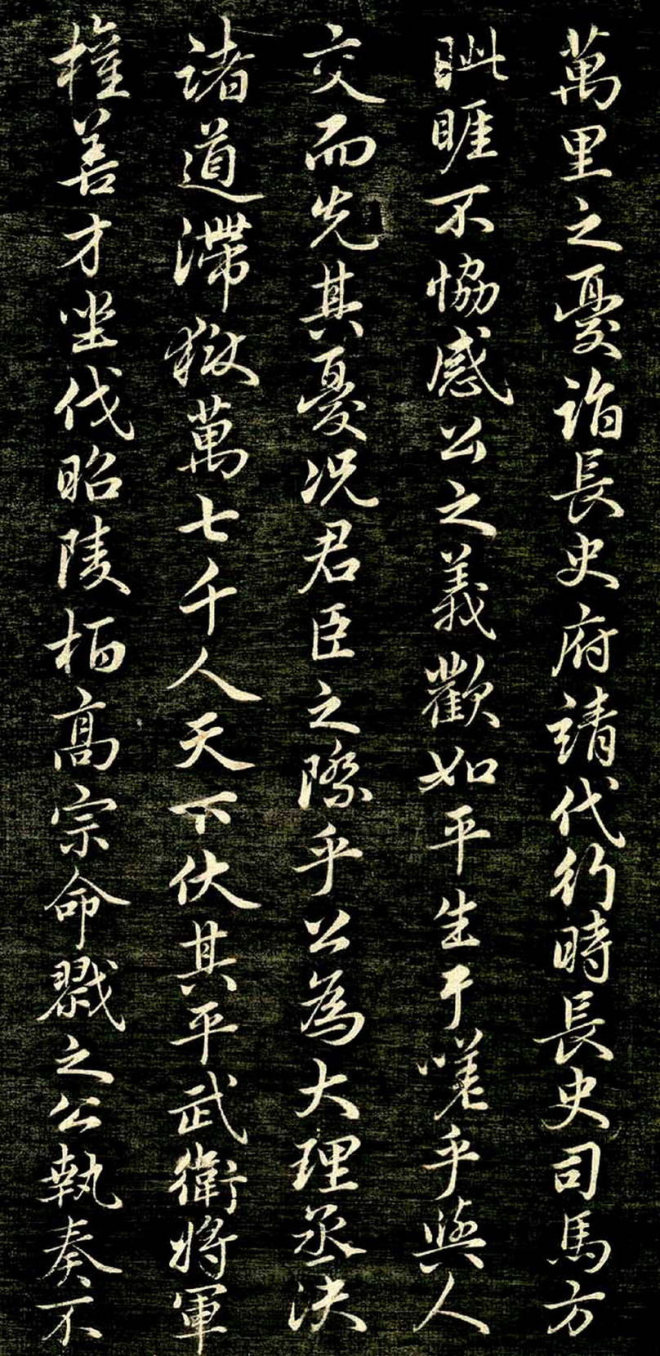 萬里之憂詣長史府請代行時長史司馬方
眦睚不恊感公之義歡如平生于嗟乎與人
交而先其憂况君臣之際乎公為大理丞决
諸道滯獄萬七千人天下伏其平武衛將軍
權善才坐伐昭陵柏高宗命戮之公執奏不